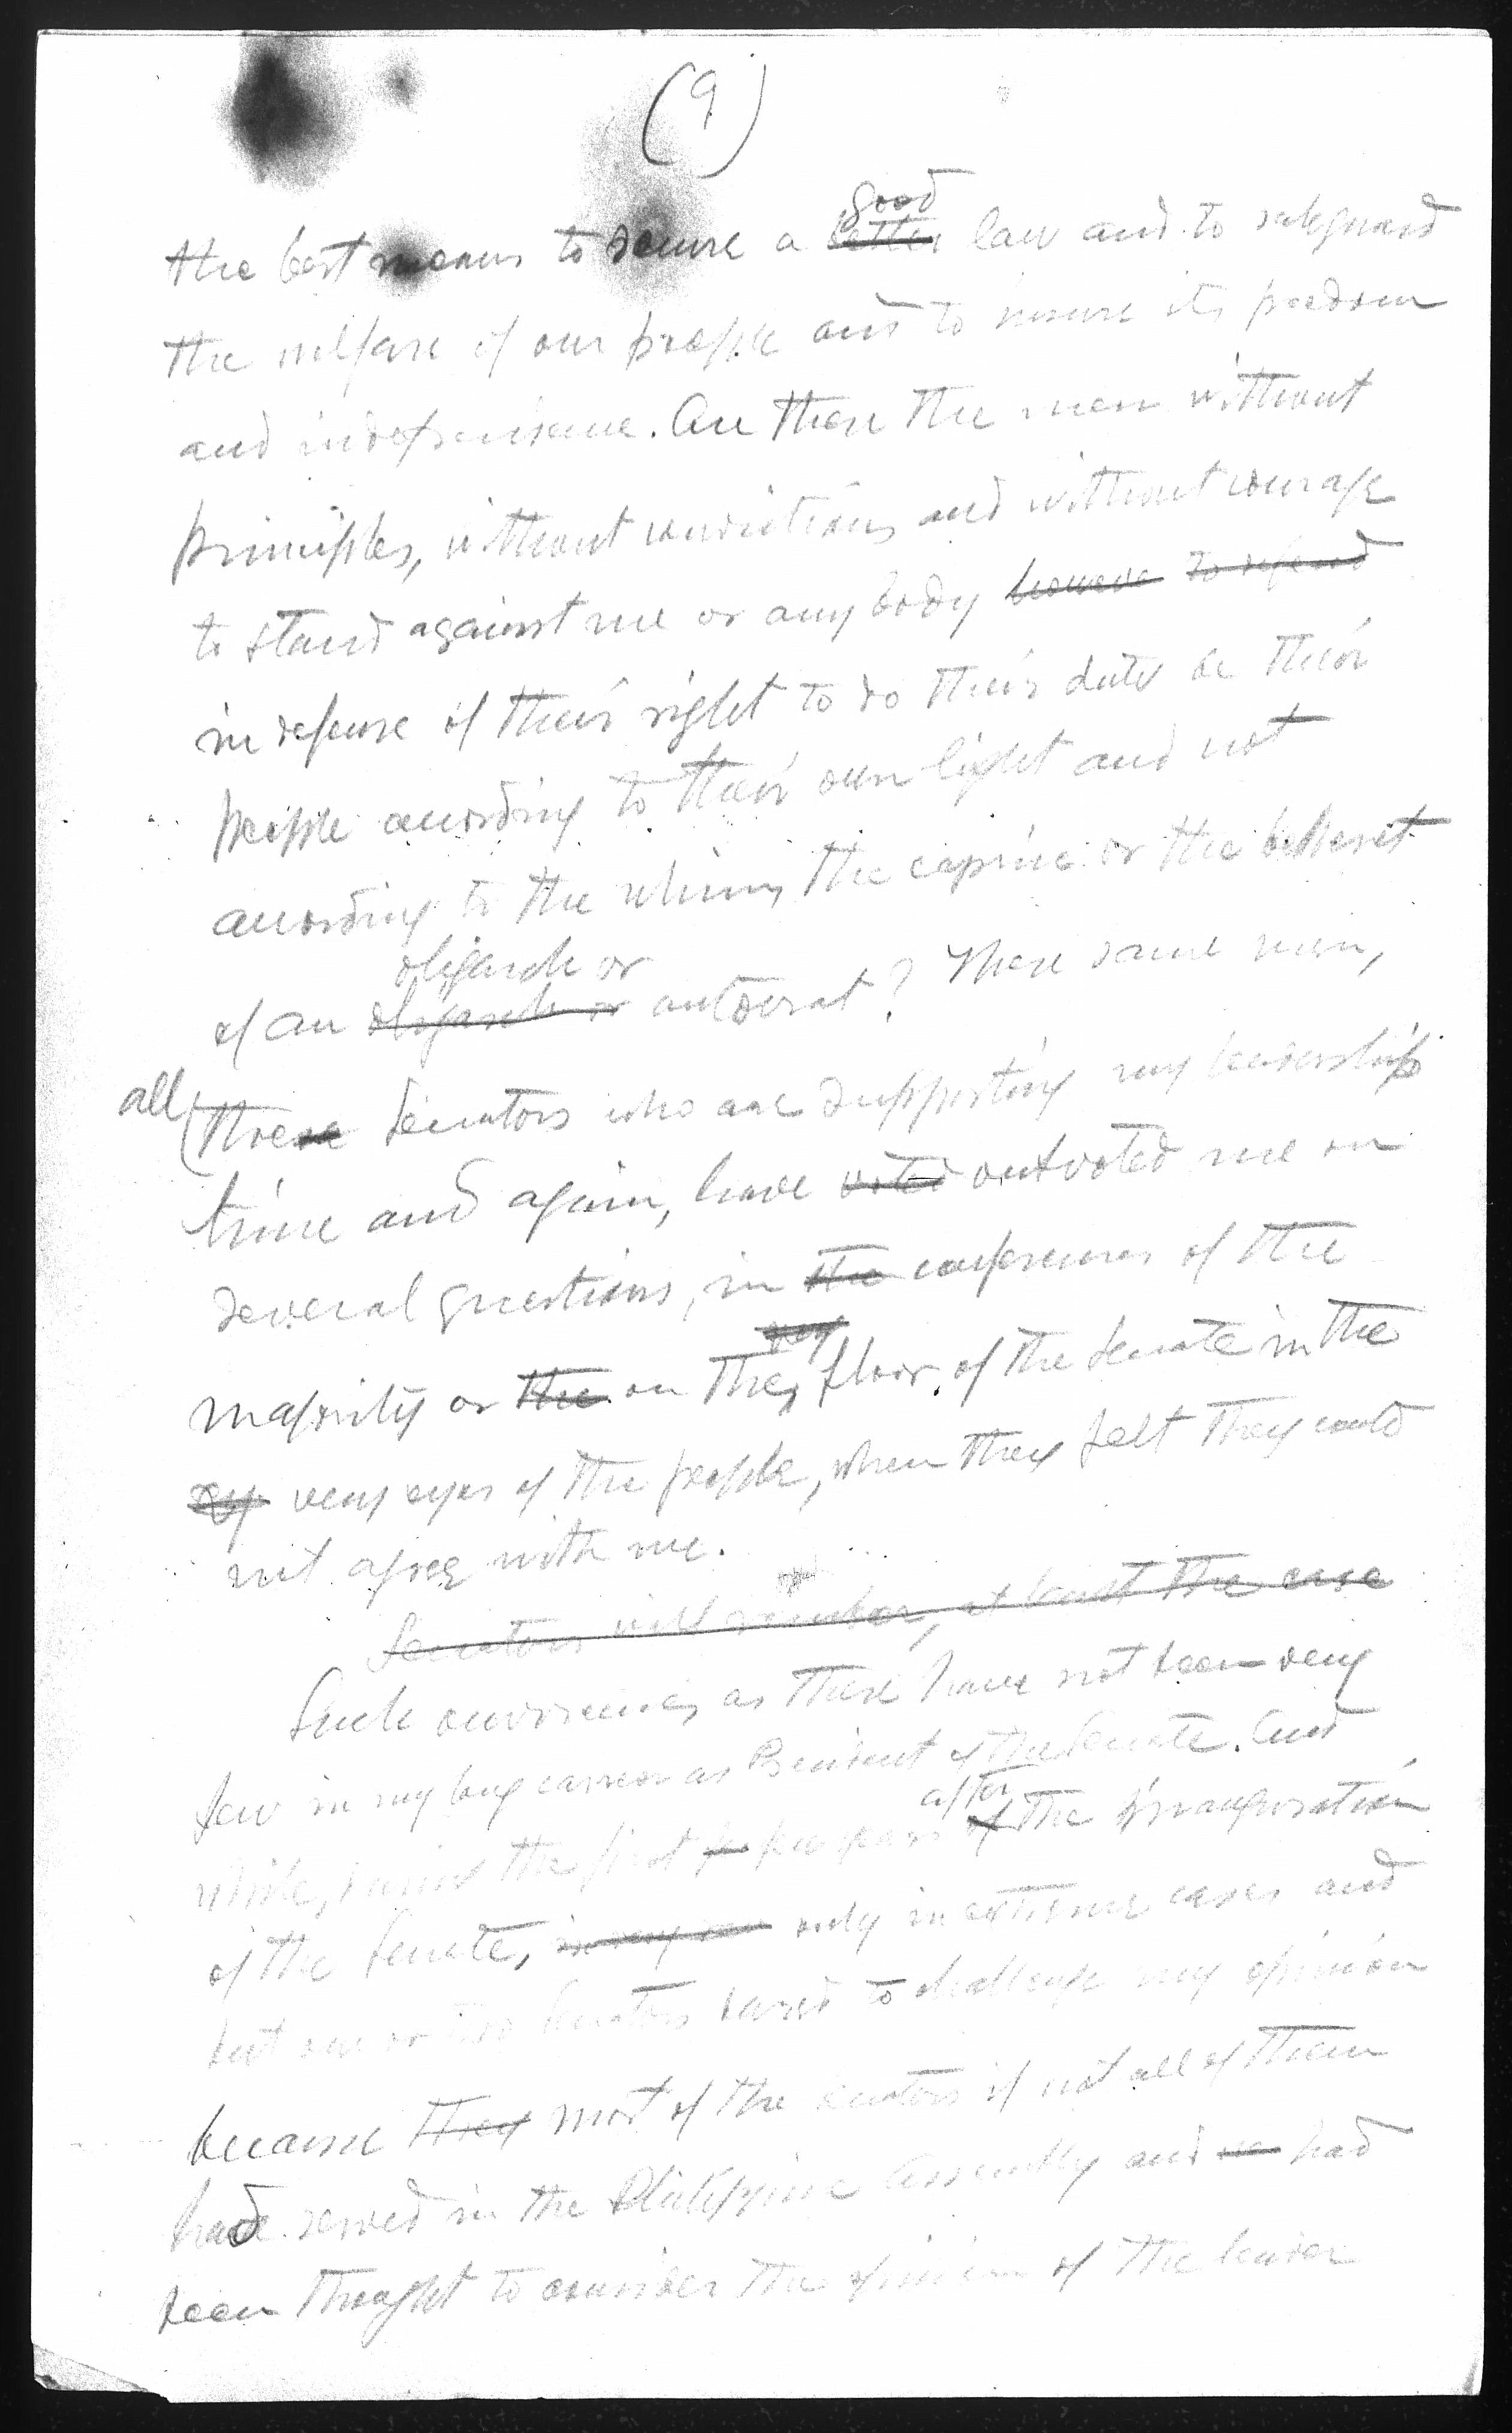 (9)
good
the best means to secure a better law and to safeguard
the welfare of our people and to insure its freedom
and independence. Are these the men without
principles, without convictions and without courage
to stand against me or any body however to defend
in defense of their right to do their duty be their
people according to their own light and not
according to the whims, the caprice or the behest
oligarch or
of an oligarch or autocrat? These same men,
all these Senators who are supporting my leadership
time and again, have voted outvoted me on
several questions, in the conferences of the
majority or the on the very floor of the Senate in the
eye very eyes of the people, when they felt they could
not agree with me.
Senators will remember, at least the case
Such occurrences as these have not been very
few in my long career as President of the Senate. And
after
while, during the first few years of the inauguration
of the Senate, in very rare only in extreme cases and
but one or two Senators dared to challenge my opinion
because they most of the Senators if not all of them
had served in the Philippine Assembly and had
been thought to consider the opinion of the leader